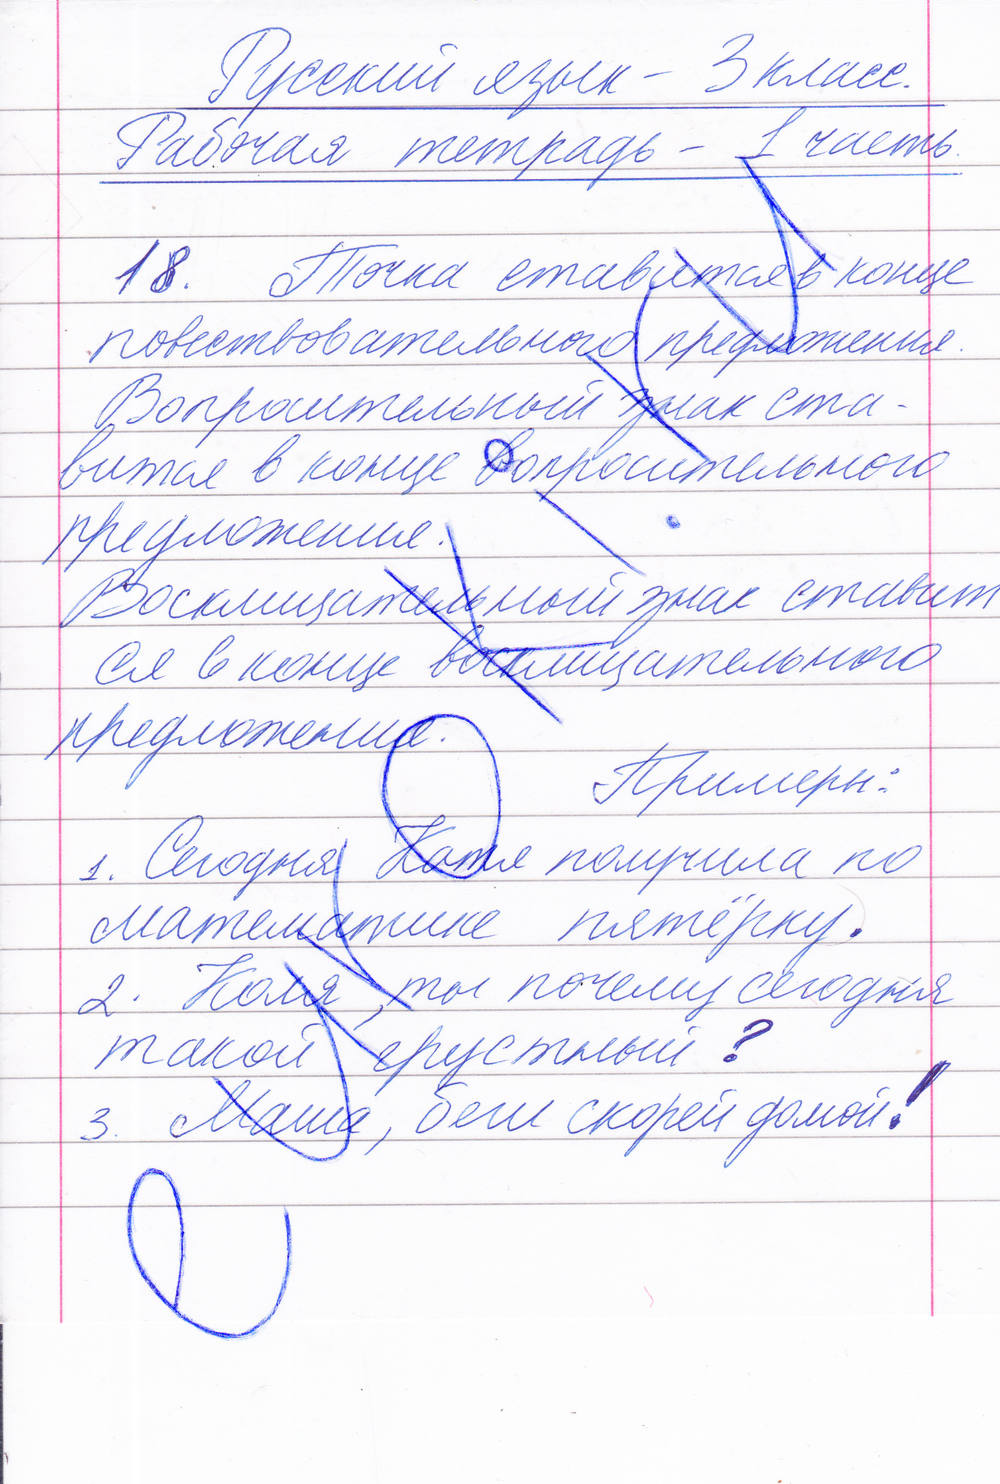 Русский язык - 3 класс.
Рабочая тетрадь - 1 часть.
18. Точка ставится в конце
повествовательного предложения.
Вопросительный знак ста-
вится в конце вопросительного
предложения.
Восклицательный знак ставит
ся в конце восклицательного
предложения.
Примеры:
1. Сегодня Катя получила по
математике пятёрку.
2. Коля, ты почему сегодня
такой грустный?
3. Маша, беги скорей домой!